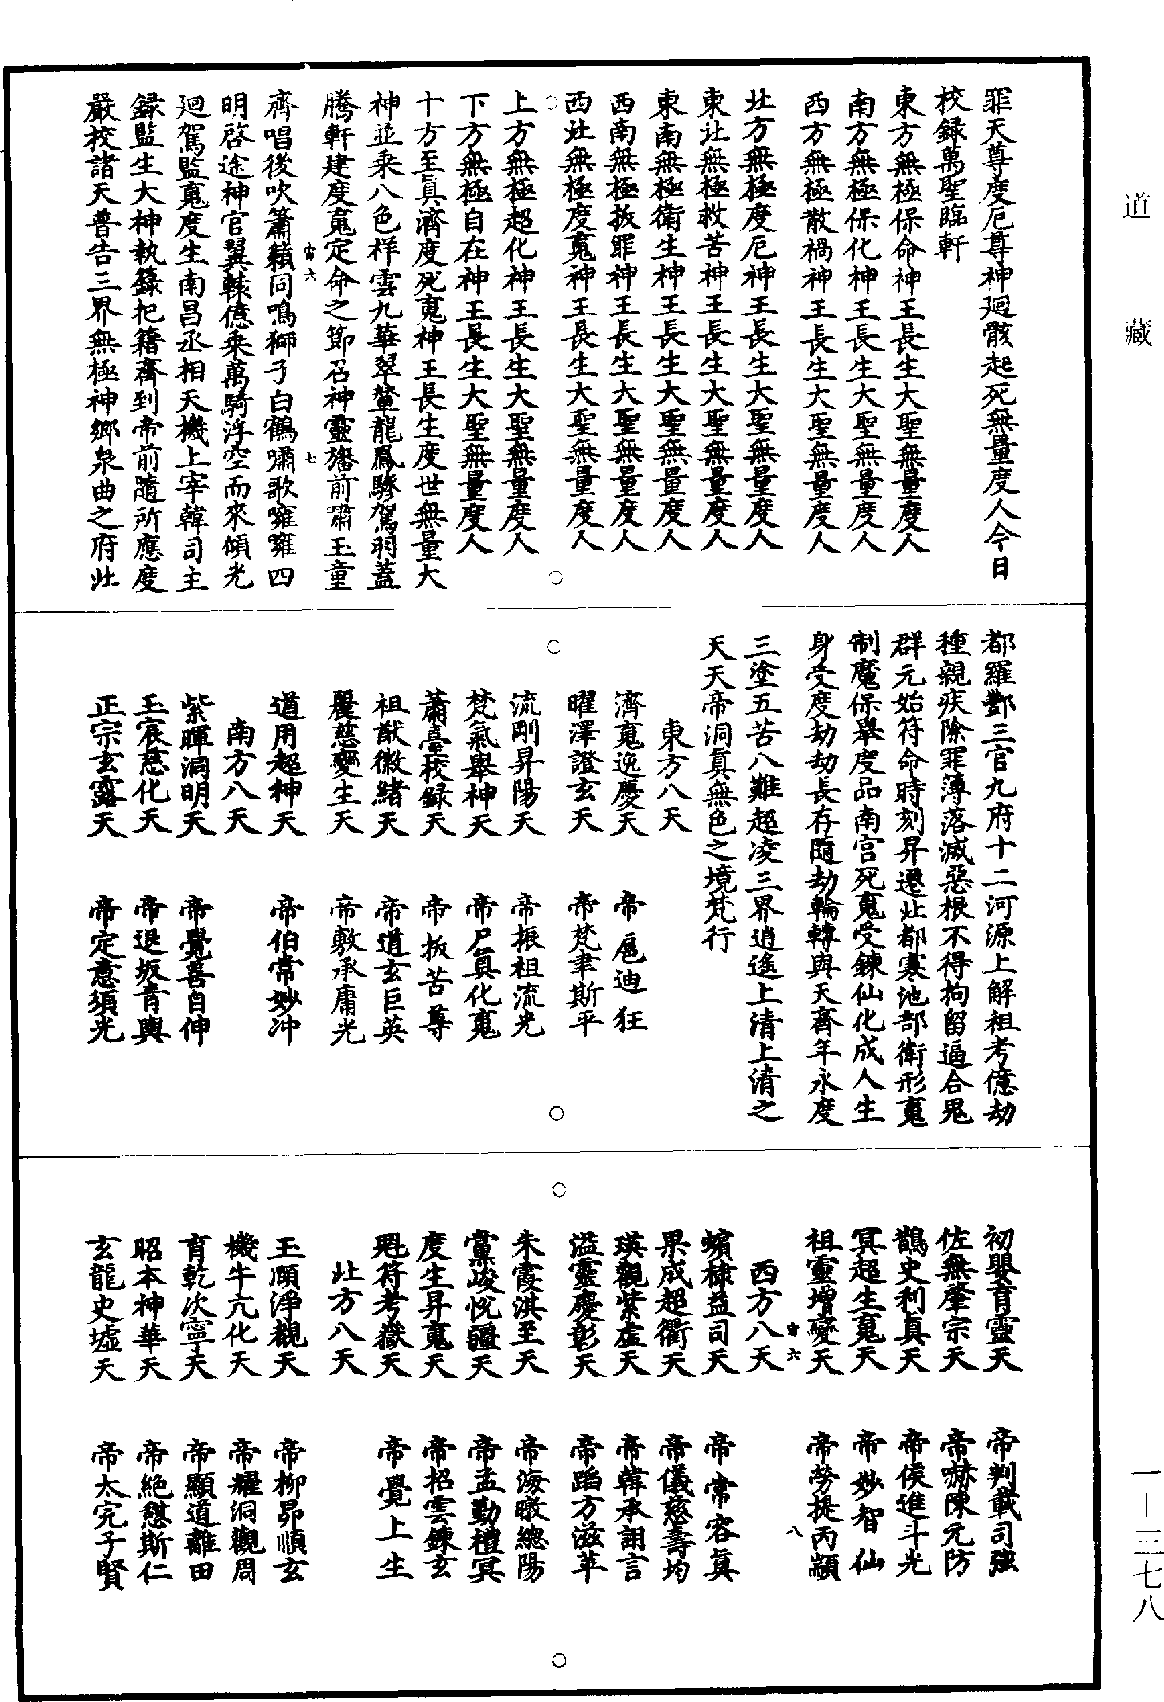 罪天尊度厄尊神廻骸起死無量度人今日
校録萬聖臨軒
東方無極保命神王長生大聖無量度人
南方無極保化神王長生大聖無量度人
西方無極散禍神王長生大聖無量度人
北方無極度厄神王長生大聖無量度人
東北無極救苦神王長生大聖無量度人
東南無極衛生神王長生大聖無量度人
西南無極拔罪神王長生大聖無量度人
西北無極度䰟神王長生大聖無量度人
上方無極超化神王長生大聖無量度人
下方無極自在神王長生大聖無量度人
十方至真濟度死䰟神王長生度世無量大
神並乘八色祥雲九華翠輦龍鳳驂駕羽蓋
騰軒建度䰟定命之節召神靈旛前嘯玉童
齊唱後吹簫籟同鳴獅子白鶴嘯歌嗈嗈四
宙六
七
明啓途神官翼轅億乘萬騎浮空而來傾光
廻駕監䰟度生南昌丞相天機上宰韓司主
録監生大神執籙把籍齊到帝前隨所應度
嚴校諸天普告三界無極神鄉泉曲之府北
都羅酆三官九府十二河源上解祖考億劫
種親疾除罪薄落滅惡根不得拘留逼合鬼
群元始符命時刻昇遷北都寒池部衛形䰟
制魔保舉度品南宮死䰟受鍊仙化成人生
身受度劫劫長存隨劫輪轉與天齊年永度
三塗五苦八難超凌三界逍遙上清上清之
天天帝洞真無色之境梵行
東方八天
濟䰟逸慶天 帝扈迪狂
曜澤證玄天 帝梵聿斯平
流剛昇陽天 帝振祖流光
梵氣舉神天 帝尸真化䰟
蕭臺校録天 帝拔苦尊
祖猷微緒天 帝道玄巨英
麗慈變生天 帝敷承庸光
道用超神天 帝伯常妙冲
南方八天
紫暉洞明天 帝覺善自伸
玉宸慈化天 帝退坂育輿
正宗玄露天 帝定意須光
初嬰育靈天 帝判載司強
佐無肇宗天 帝嚇陳元防
鵲史利真天 帝侯進斗光
冥超生䰟天 帝妙智仙
祖靈增變天 帝勞提丙顓
八
西方八天
宙六
蠙棣益司天 帝常容真
果成超衢天 帝儀慈壽均
瑛觀紫虛天 帝韓承詡言
溢靈慶彰天 帝蹈方滋革
朱霞淇至天 帝海暾總陽
黨峻悅疆天 帝孟勤禮冥
度生昇䰟天 帝招雲鍊玄
魁符考嶽天 帝覺上生
北方八天
玉頤淨觀天 帝柳昴順玄
機牛亢化天 帝耀洞觀周
育乾次寧天 帝顯道離田
昭本神華天 帝絶慧斯仁
玄龍史墟天 帝太完子賢
道藏
一—三七八